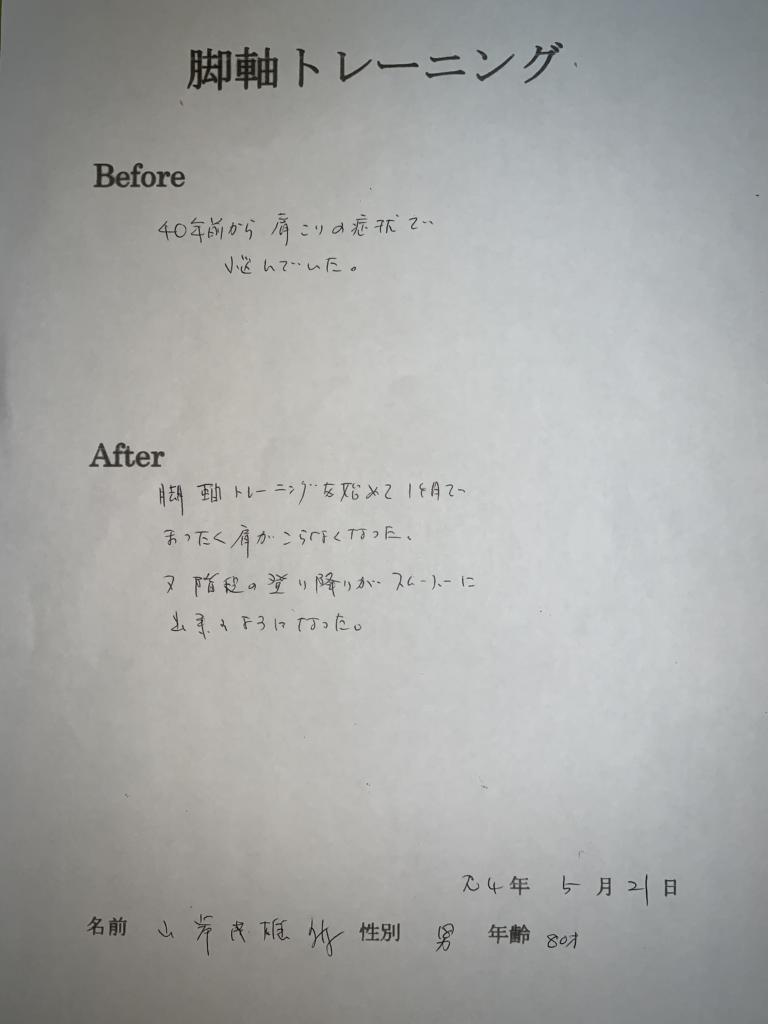 脚軸トレーニング
Before
40年前から肩こりの症状で
悩んでいた。
After
脚軸トレーニングを始めて1ヶ月で
まったく肩がこらなくなった。
又階段の登り降りがスムーズに
出来るようになった。
4年 5月21日
名前 山岸 雄 性別 男 年齢 80才